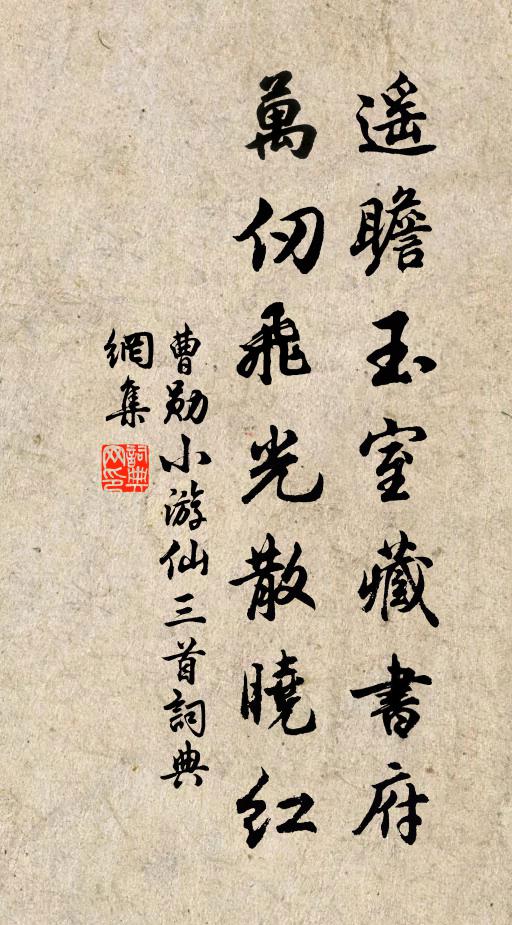 遥瞻玉室藏書府
萬仞飛光散曉紅
曹勛小游仙三首詞典
網集
詞典網印